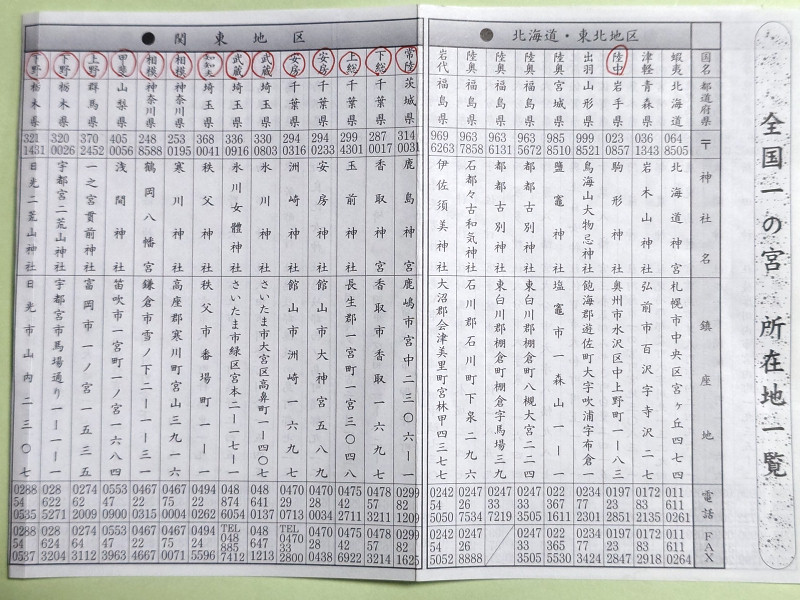 全国一の宮 所在地一覧
● 北海道・東北地区
国名 都道府県 〒 神社名 鎮座地 電話 FAX
蝦夷 北海道 064 8505 北海道神宮 札幌市中央区宮ヶ丘四七四 011 611 0261 011 611 0264
津軽 青森県 036 1343 岩木山神社 弘前市百沢字寺沢二七 0172 83 2135 0172 83 2918
陸中 岩手県 023 0857 駒形神社 奥州市水沢区中上野町一ー八三 0197 23 2851 0197 23 2847
出羽 山形県 999 8521 鳥海山大物忌神社 飽海郡遊佐町大字吹浦字布倉一 0234 77 2301 0234 77 3424
陸奥 宮城県 985 8510 鹽竈神社 塩竈市一森山一ー一 022 367 1611 022 367 5530
陸奥 福島県 963 5672 都都古別神社 東白川郡棚倉町八槻大宮二二四 0247 33 3505 0247 33 3505
陸奥 福島県 963 6131 都都古別神社 東白川郡棚倉町棚倉字馬場三九 0247 33 7219
陸奥 福島県 963 7858 石都々古和気神社 石川郡石川町下泉二九六 0247 26 7534 0247 26 8888
岩代 福島県 969 6263 伊佐須美神社 大沼郡会津美里町宮林甲四三七七 0242 54 5050 0242 54 5052
● 関東地区
常陸 茨城県 314 0031 鹿島神宮 鹿嶋市宮中二三〇六ー一 0299 82 1209 0299 82 1625
下総 千葉県 287 0017 香取神宮 香取市香取一六九七 0478 57 3211 0478 57 3214
上総 千葉県 299 4301 玉前神社 長生郡一宮町一宮三〇四八 0475 42 2711 0475 42 6922
安房 千葉県 294 0233 安房神社 館山市大神宮五八九 0470 28 0034 0470 28 0438
安房 千葉県 294 0316 洲崎神社 館山市洲崎一六九七 0470 29 0713 TEL 0470 33 2800
武蔵 埼玉県 330 0803 氷川神社 さいたま市大宮区高鼻町一ー四〇七 048 641 0137 048 647 1213
武蔵 埼玉県 336 0916 氷川女體神社 さいたま市緑区宮本二ー一七ー一 048 874 6054 TEL 048 885 7412
知知夫 埼玉県 368 0041 秩父神社 秩父市番場町一ー一 0494 22 0262 0494 24 5596
相模 神奈川県 253 0195 寒川神社 高座郡寒川町宮山三九一六 0467 75 0004 0467 75 0071
相模 神奈川県 248 8588 鶴岡八幡宮 鎌倉市雪ノ下二ー一ー三一 0467 22 0315 0467 22 4667
甲斐 山梨県 405 0056 浅間神社 笛吹市一宮町一ノ宮一六八四 0553 47 0900 0553 47 3963
上野 群馬県 370 2452 一之宮貫前神社 富岡市一ノ宮一五三五 0274 62 2009 0274 64 3112
下野 栃木県 320 0026 宇都宮二荒山神社 宇都宮市馬場通り一ー一ー一 028 622 5271 028 624 3204
下野 栃木県 321 1431 日光二荒山神社 日光市山内二三〇七 0288 54 0535 0288 54 0537